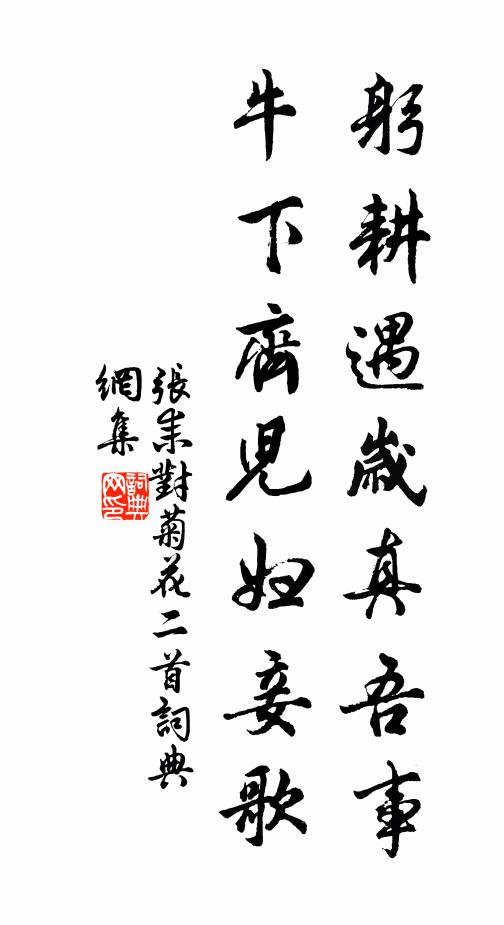 躬耕遇歲真吾事
牛下齊兒妇妾歌
張耒對菊花二首詞典
網集
詞典
网印